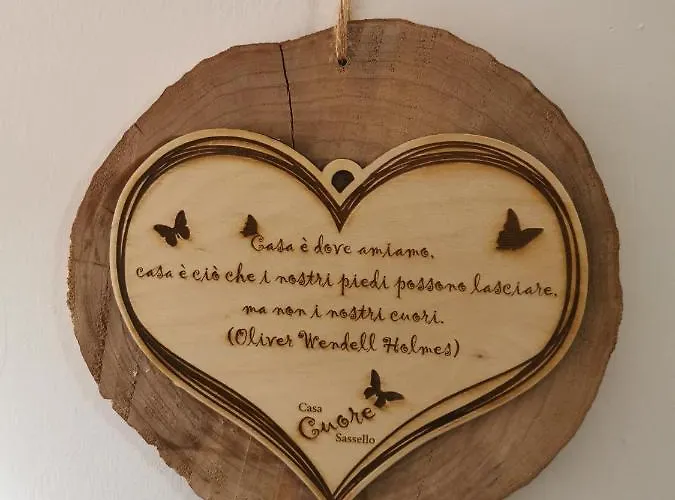 Casa è dove amiamo,
casa è ciò che i nostri piedi possono lasciare,
ma non i nostri cuori.
(Oliver Wendell Holmes)
Casa
Cuore
Sassello